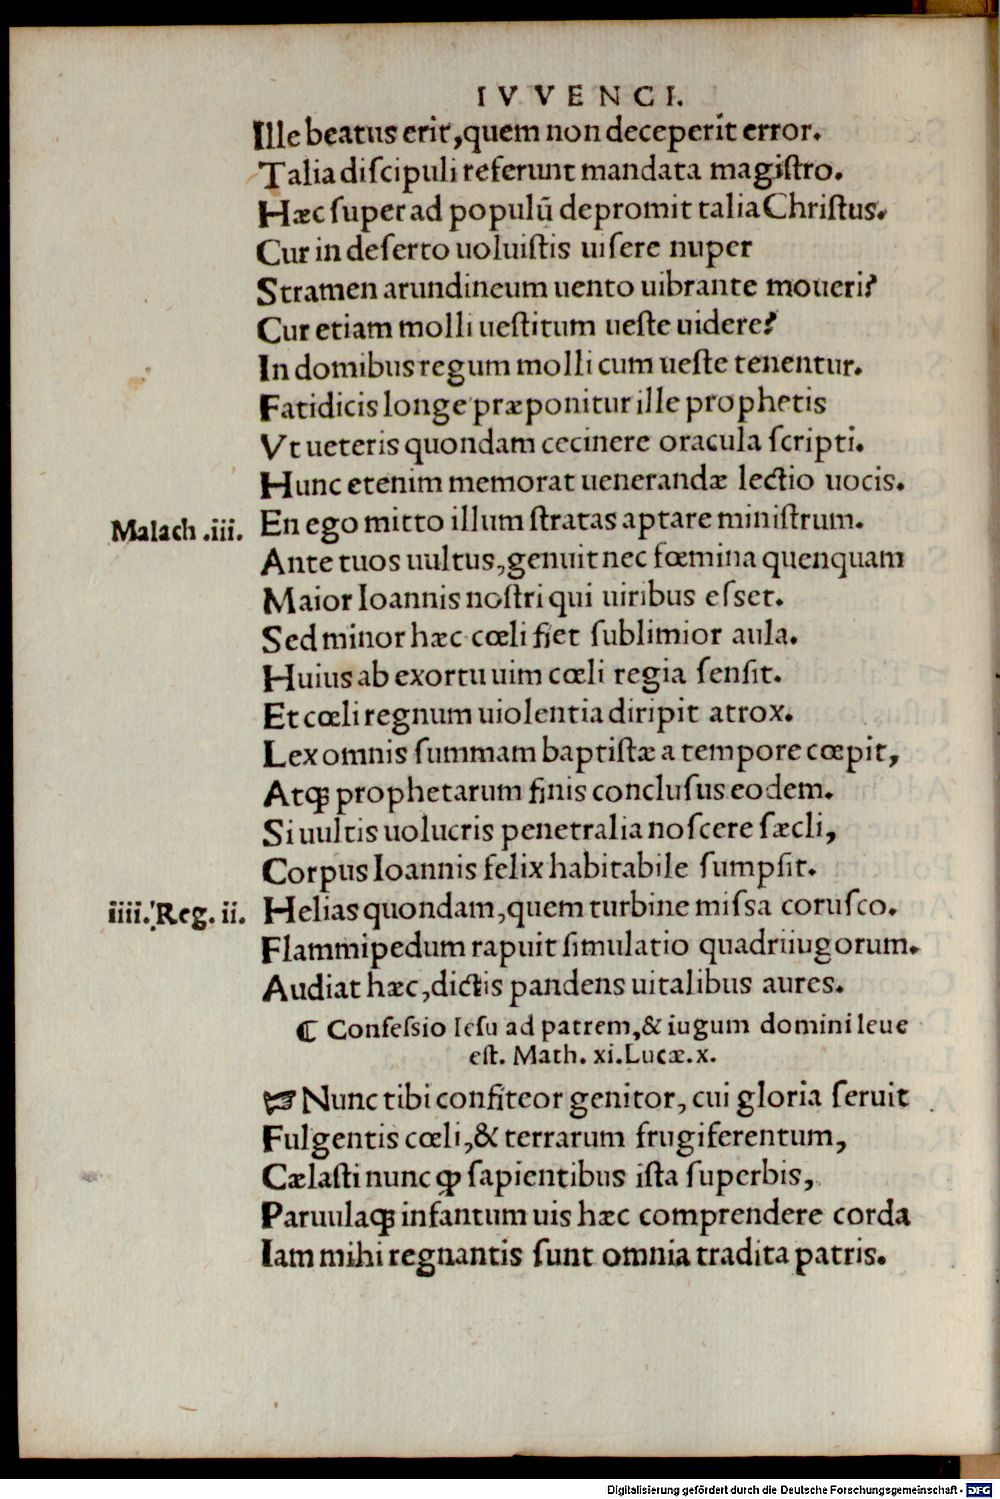 IVVENCI.
Ille beatus erit, quem non deceperit error.
Talia discipuli referunt mandata magistro.
Hæc super ad populū depromit talia Christus.
Cur in deserto uoluistis uisere nuper
Stramen arundineum uento uibrante moueri?
Cur etiam molli uestitum ueste uidere?
In domibus regum molli cum ueste tenentur.
Fatidicis longe præponitur ille prophetis
Vt ueteris quondam cecinere oracula scripti.
Hunc etenim memorat uenerandæ lectio uocis.
Malach .iii. En ego mitto illum stratas aptare ministrum.
Ante tuos uultus, genuit nec fœmina quenquam
Maior Ioannis nostri qui uiribus esset.
Sed minor hæc cœli fiet sublimior aula.
Huius ab exortu uim cœli regia sensit.
Et cœli regnum uiolentia diripit atrox.
Lex omnis summam baptistæ a tempore cœpit,
Atq; prophetarum finis conclusus eodem.
Si uultis uolucris penetralia noscere sæcli,
Corpus Ioannis felix habitabile sumpsit.
iiii. Reg. ii. Helias quondam, quem turbine missa corusco.
Flammipedum rapuit simulatio quadriiugorum.
Audiat hæc, dictis pandens uitalibus aures.
¶ Confessio Iesu ad patrem, & iugum domini leue
est. Math. xi. Lucæ. x.
☞ Nunc tibi confiteor genitor, cui gloria seruit
Fulgentis cœli, & terrarum frugiferentum,
Cælasti nunc ꝙ sapientibus ista superbis,
Paruulaq; infantum uis hæc comprendere corda
Iam mihi regnantis sunt omnia tradita patris.
Digitalisierung gefördert durch die Deutsche Forschungsgemeinschaft - DFG